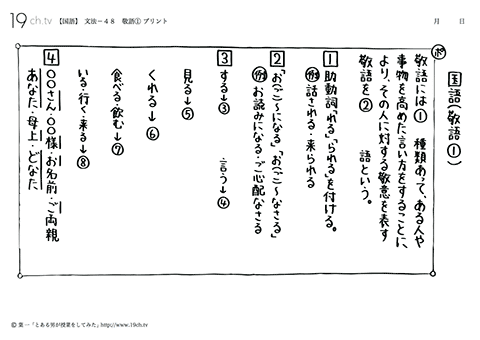 19ch.tv 【国語】 文法－48 敬語① プリント
月 日
国語(敬語①)
ポ
敬語には① 種類あって、ある人や
事物を高めた言い方をすることに
より、その人に対する敬意を表す
敬語を② 語という。
1 助動詞「れる」「られる」を付ける。
例 話される・来られる
2 「お(ご)〜になる」「お(ご)〜なさる」
例 お読みになる・ご心配なさる
3 する→③ 言う→④
見る→⑤
くれる→⑥
食べる・飲む→⑦
いる・行く・来る→⑧
4 〇〇さん・〇〇様・お名前・ご両親
あなた・母上・どなた
© 葉一「とある男が授業をしてみた」http://www.19ch.tv